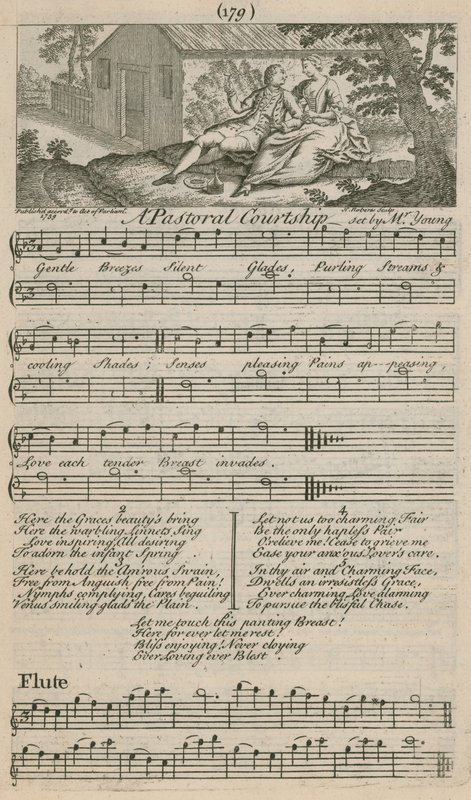 (179)
Publish'd accord.g to Act of Parliamt.
1739
H. Roberts Sculp.
A Pastoral Courtship set by Mr. Young
Gentle Breezes Silent Glades, Purling Streams &
cooling Shades; Senses pleasing Pains ap--peasing,
Love each tender Breast invades.
2
Here the Graces beauty's bring
Here the warbling Linnets Sing
Love inspiring, All desiring
To adorn the infant Spring.
3
Here behold the Am'rous Swain,
Free from Anguish free from Pain!
Nymphs complying, Cares beguiling
Venus smiling glads the Plain.
4
Let not us too charming Fair
Be the only hapless Pair
O relieve me! Cease to grieve me
Ease your anxious Lover's care.
5
In thy air and Charming Face,
Dwells an irresistless Grace,
Ever charming, Love alarming
To pursue the blisful Chase.
Let me touch this panting Breast!
Here for ever let me rest!
Bliss enjoying! Never cloying
Ever Loving ever Blest.
Flute